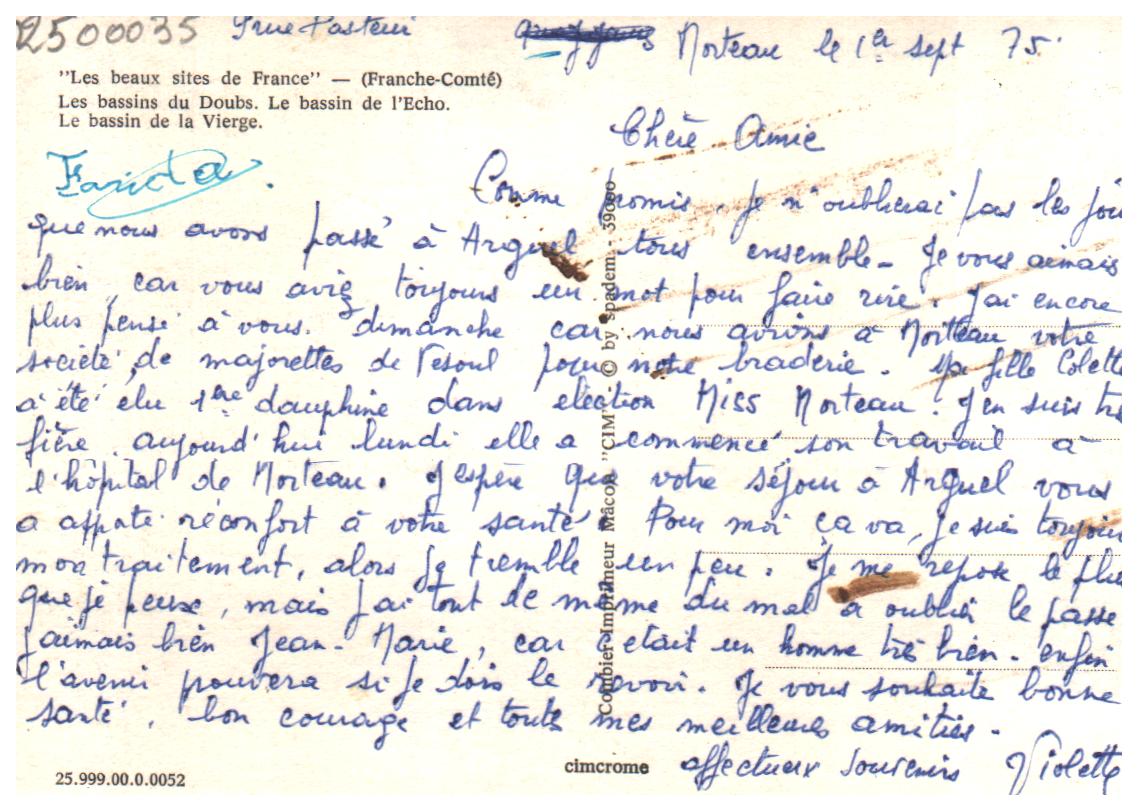 2500035 rue Pasteur Morteau le 1er sept 75.
"Les beaux sites de France" — (Franche-Comté)
Les bassins du Doubs. Le bassin de l'Echo.
Le bassin de la Vierge.
Chère Amie
Farida.
Comme promis. Je n'oublierai pas les jou
que nous avons passé à Arguel tous ensemble - Je vous aimais
bien, car vous aviez toujours un mot pour faire rire. J'ai encore
plus pensé à vous. dimanche car nous avions à Morteau votre
société de majorettes de Vesoul pour notre braderie. Ma fille Colette
a été élu 1ère dauphine dans election Miss Morteau. J'en suis trè
fière. aujourd'hui lundi elle a commencé son travail à
l'hôpital de Morteau. J'espère que votre séjour à Arguel vous
a appoté réconfort à votre santé. Pour moi ça va, je suis toujour
mon traitement, alors je tremble un peu. Je me repose le plu
que je peux, mais j'ai tout de même du mal à oublier le passe
j'aimais bien Jean-Marie, car c'était un homme très bien. enfin
l'aveni prouvera si je dois le revoir. Je vous souhaite bonne
santé, bon courage et toute mes meilleures amitiés.
affectueux souvenirs Violette
25.999.00.0.0052
cimcrome
Combier Imprimeur Mâcon "CIM" - © by spadem - 39000